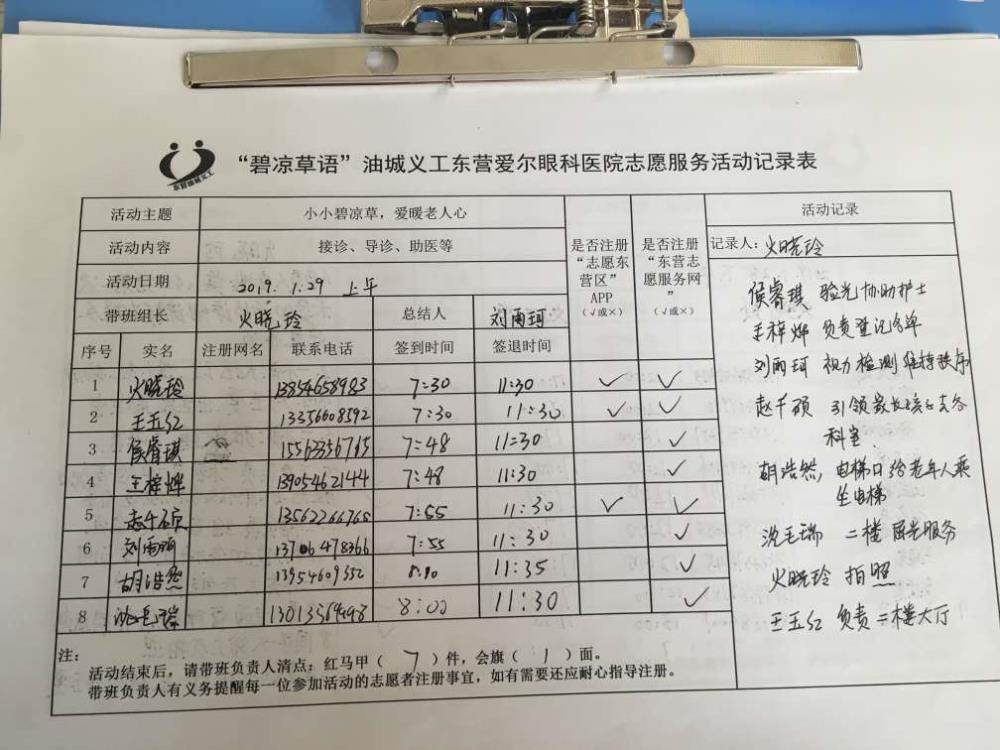 东营油城义工
“碧凉草语”油城义工东营爱尔眼科医院志愿服务活动记录表
活动主题 小小碧凉草，爱暖老人心
活动内容 接诊、导诊、助医等
活动日期 2019.1.29 上午
带班组长 火晓玲 总结人 刘雨珂
是否注册“志愿东营区”APP（√或×）
是否注册“东营志愿服务网”（√或×）
序号 实名 注册网名 联系电话 签到时间 签退时间
1 火晓玲 13854658983 7:30 11:30 √ √
2 王玉红 13356608592 7:30 11:30 √ √
3 侯睿琪 15563356765 7:48 11:30 √
4 王梓烨 13905462144 7:48 11:30 √
5 赵千硕 13562266765 7:55 11:30 √ √
6 刘雨珂 13706478366 7:55 11:30 √
7 胡浩然 13954609352 8:00 11:35 √
8 沈毛瑞 13013564498 8:00 11:30 √
注：
活动结束后，请带班负责人清点：红马甲（ 7 ）件，会旗（ 1 ）面。
带班负责人有义务提醒每一位参加活动的志愿者注册事宜，如有需要还应耐心指导注册。
活动记录
记录人：火晓玲
侯睿琪 验光协助护士
王梓烨 负责登记名单
刘雨珂 视力检测 维持秩序
赵千硕 引领家长孩子去各
科室
胡浩然，电梯口给老年人乘
坐电梯
沈毛瑞 二楼 服务
火晓玲 拍照
王玉红 负责二楼大厅